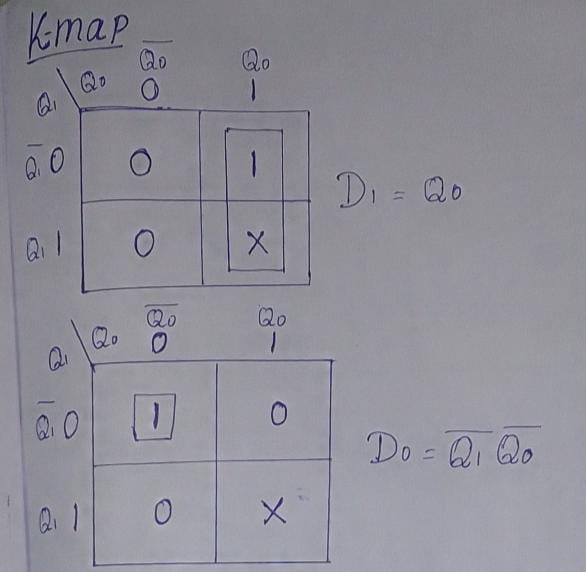 K-map
Q̅₀ Q₀
Q₁ \ Q₀ 0 1
Q̅₁ 0 0 1
Q₁ 1 0 X
D₁ = Q₀
Q̅₀ Q₀
Q₁ \ Q₀ 0 1
Q̅₁ 0 1 0
Q₁ 1 0 X
D₀ = Q̅₁ Q̅₀